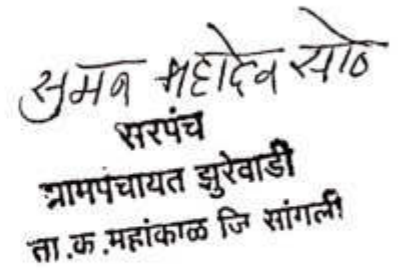 सुमन महादेव
सरपंच
ग्रामपंचायत झुरेवाडी
ता.क.महांकाळ जि सांगली